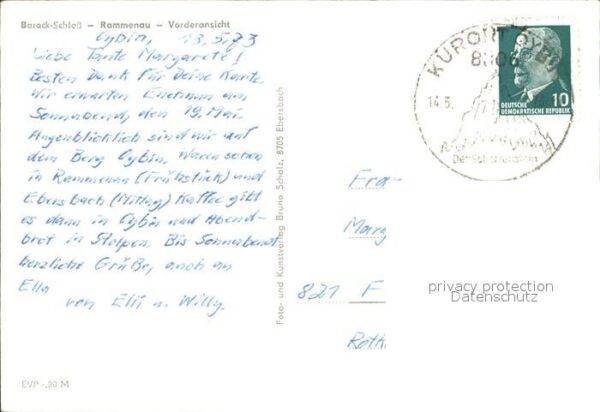 Barock-Schloß – Rammenau – Vorderansicht
Oybin, 13.5.73
Liebe Tante Margarete!
Besten Dank für Deine Karte
Wir erwarten Euch nun am
Sonnabend, den 19. Mai.
Augenblicklich sind wir auf
dem Berg Oybin, waren schon
in Rammenau (Frühstück) und
Ebersbach (Mittag) Kaffee gibt
es dann in Oybin und Abend-
brot in Stolpen. Bis Sonnabend
herzliche Grüße, auch an
Ella
von Elli u. Willy.
EVP -,20 M
Foto- und Kunstverlag Bruno Scholz, 8705 Ebersbach
KURORT OYBIN
8806
14.5.
DEUTSCHE
DEMOKRATISCHE REPUBLIK
10
Fra
Marg
821 F
Roth
privacy protection
Datenschutz